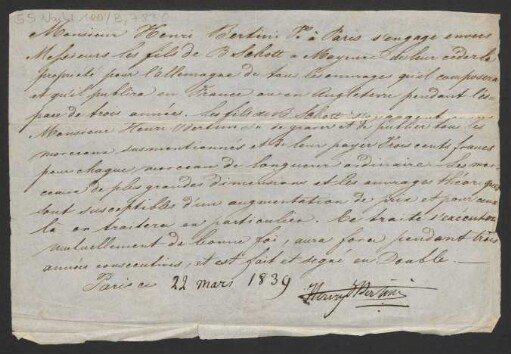 55 Nachl 100/B, 7830
Monsieur Henri Bertini Jne. à Paris s'engage envers
Messieurs les fils de B Schott a Mayence de leur céder la
propriété pour l'Allemagne de tous les ouvrages qu'il composera
et qu'il publiera en France ou en Angleterre pendant l'es-
pace de trois années. Les fils de B Schott s'engagent
Monsieur Henri Bertini a graver et de publier tous les
morceaux susmentionnés et de leur payer trois cents francs
pour chaque morceau de longueur ordinaire. Les mor-
ceaux de plus grandes dimensions et les ouvrages théoriques
sont susceptibles d'un augmentation de prix et pour ceux
là on traitera en particulier. Ce traité s'exécutera
mutuellement de bonne foi, aura force pendant trois
années consécutives, et est fait et signé en Double. —
Paris ce 22 mars 1839 Henry Bertini